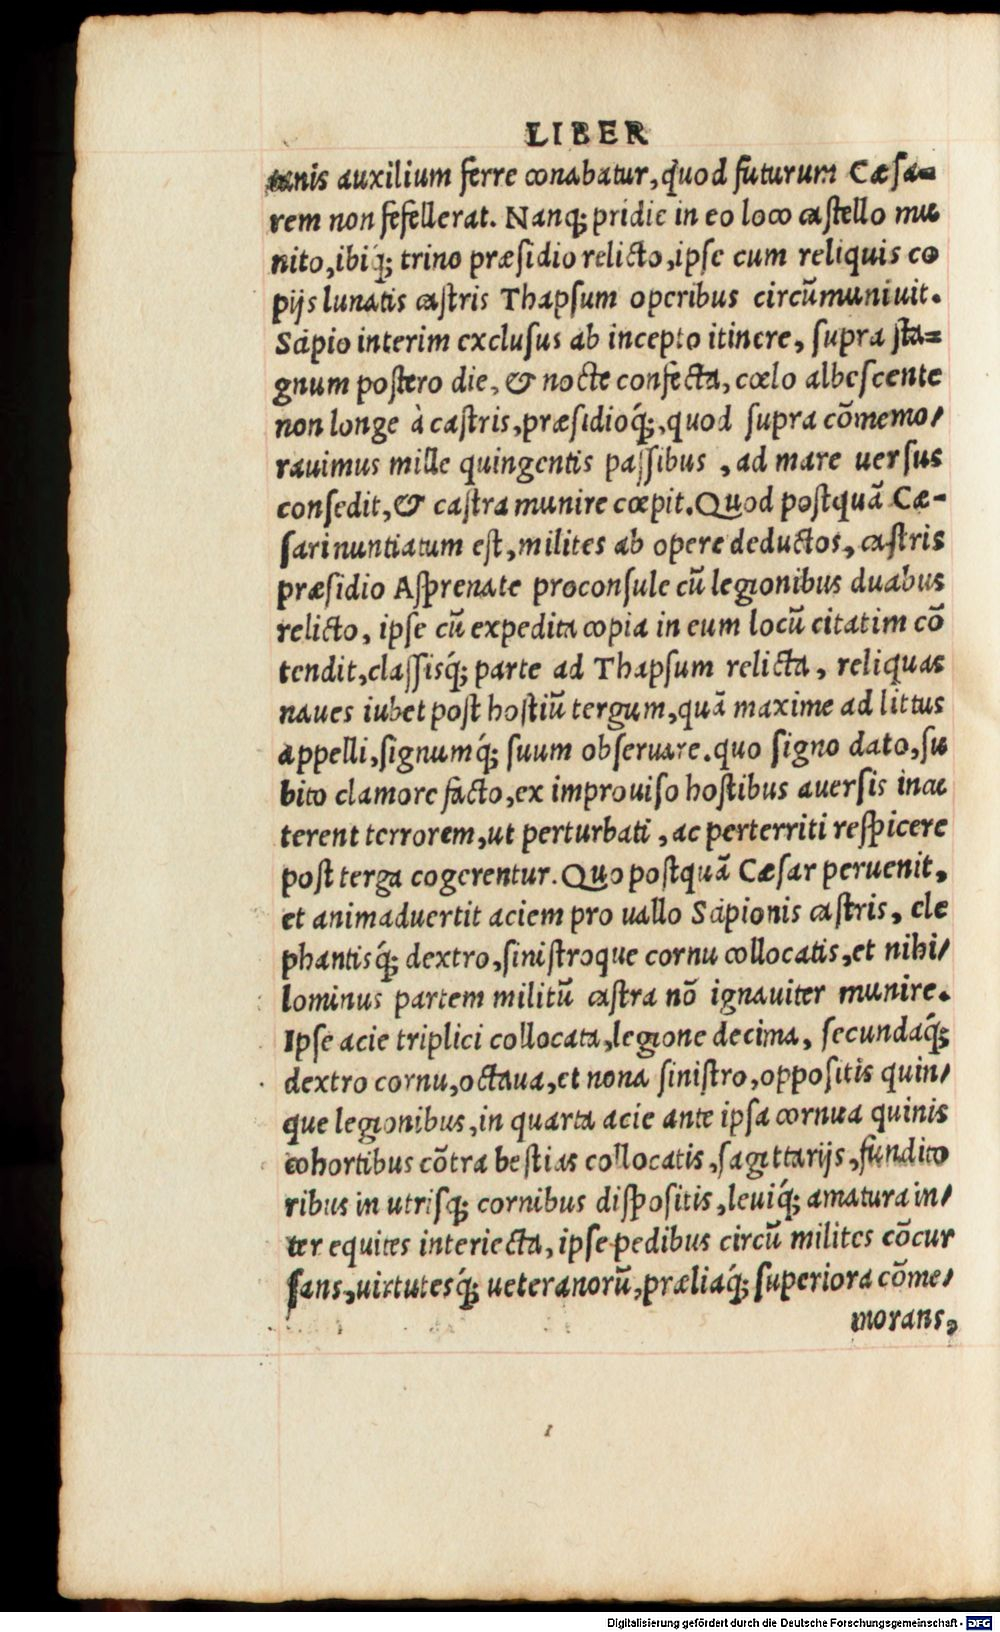 LIBER
tanis auxilium ferre conabatur, quod futurum Cæsa=
rem non fefellerat. Nanq; pridie in eo loco castello mu
nito, ibiq́; trino præsidio relicto, ipse cum reliquis co
pijs lunatis castris Thapsum operibus circũmuniuit.
Scipio interim exclusus ab incepto itinere, supra sta=
gnum postero die, & nocte confecta, cœlo albescente
non longe à castris, præsidioq́;, quod supra cõmemo/
rauimus mille quingentis passibus, ad mare uersus
consedit, & castra munire cœpit. Quod postquã Cæ-
sari nuntiatum est, milites ab opere deductos, castris
præsidio Asprenate proconsule cũ legionibus duabus
relicto, ipse cũ expedita copia in eum locũ citatim cõ
tendit, classisq́; parte ad Thapsum relicta, reliquas
naues iubet post hostiũ tergum, quã maxime ad littus
appelli, signumq́; suum obseruare. quo signo dato, su
bito clamore facto, ex improuiso hostibus auersis incu
terent terrorem, ut perturbati, ac perterriti respicere
post terga cogerentur. Quo postquã Cæsar peruenit,
et animaduertit aciem pro uallo Scipionis castris, ele
phantisq́; dextro, sinistroque cornu collocatis, et nihi/
lominus partem militũ castra nõ ignauiter munire.
Ipse acie triplici collocata, legione decima, secundaq́;
dextro cornu, octaua, et nona sinistro, oppositis quin/
que legionibus, in quarta acie ante ipsa cornua quinis
cohortibus cõtra bestias collocatis, sagittarijs, fundito
ribus in utrisq; cornibus dispositis, leuiq́; amatura in/
ter equites interiecta, ipse pedibus circũ milites cõcur
sans, uirtutesq́; ueteranorũ, præliaq́; superiora cõme/
morans,
1
Digitalisierung gefördert durch die Deutsche Forschungsgemeinschaft - DFG